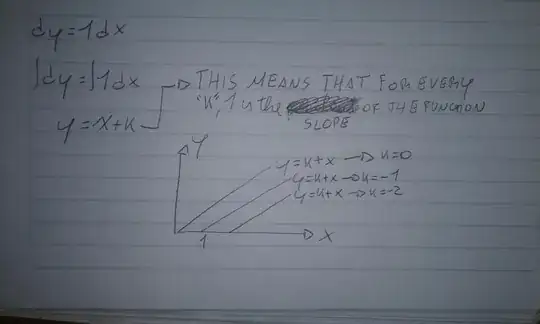 dy=1dx
∫dy=∫1dx
THIS MEANS THAT FOR EVERY
y=x+k
"K", 1 is the OF THE FUNCTION
SLOPE
Y
y=k+x → k=0
y=k+x → k=-1
y=k+x → k=-2
1
X